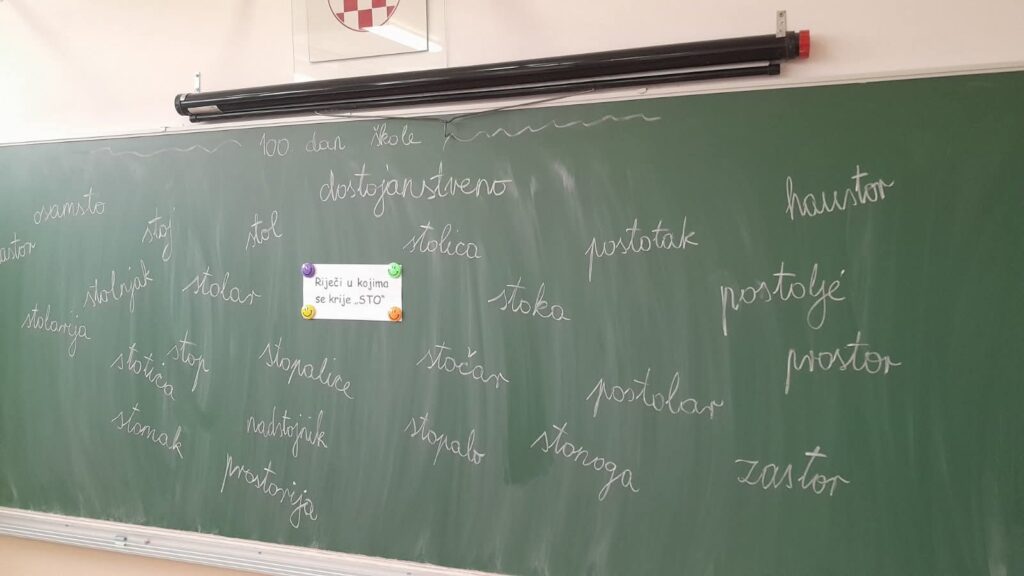 100. dan škole
dostojanstveno
haustor
osamsto
stoj
stol
stolica
postotak
stolnjak
stolar
Riječi u kojima
se krije „STO“
stoka
postolje
stolarija
stotica
stop
stopalice
stočar
postolar
prostor
stomak
nadstojnik
stopalo
stonoga
zastor
prostorija